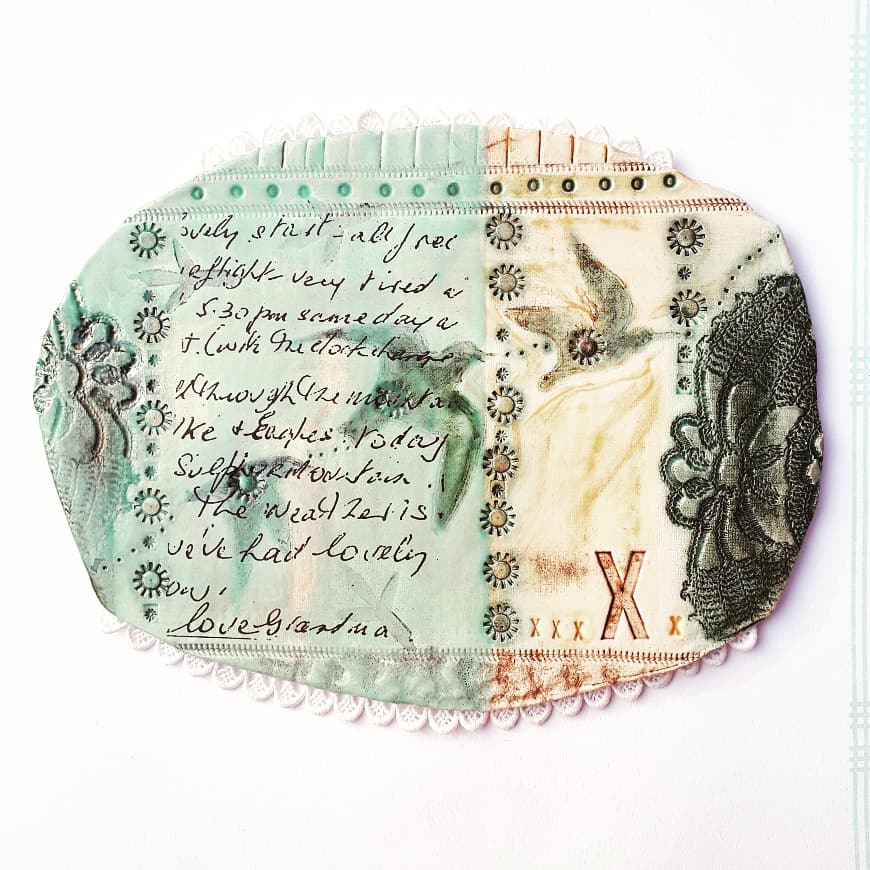 ovely start - all free
flight - very tired a
5.30pm same day a
+ (with the clock change
through the mounta
+ Eagles. today
Sulphur mountain.
The weather is
we've had lovely
ow,
love Grandma
x x x X x